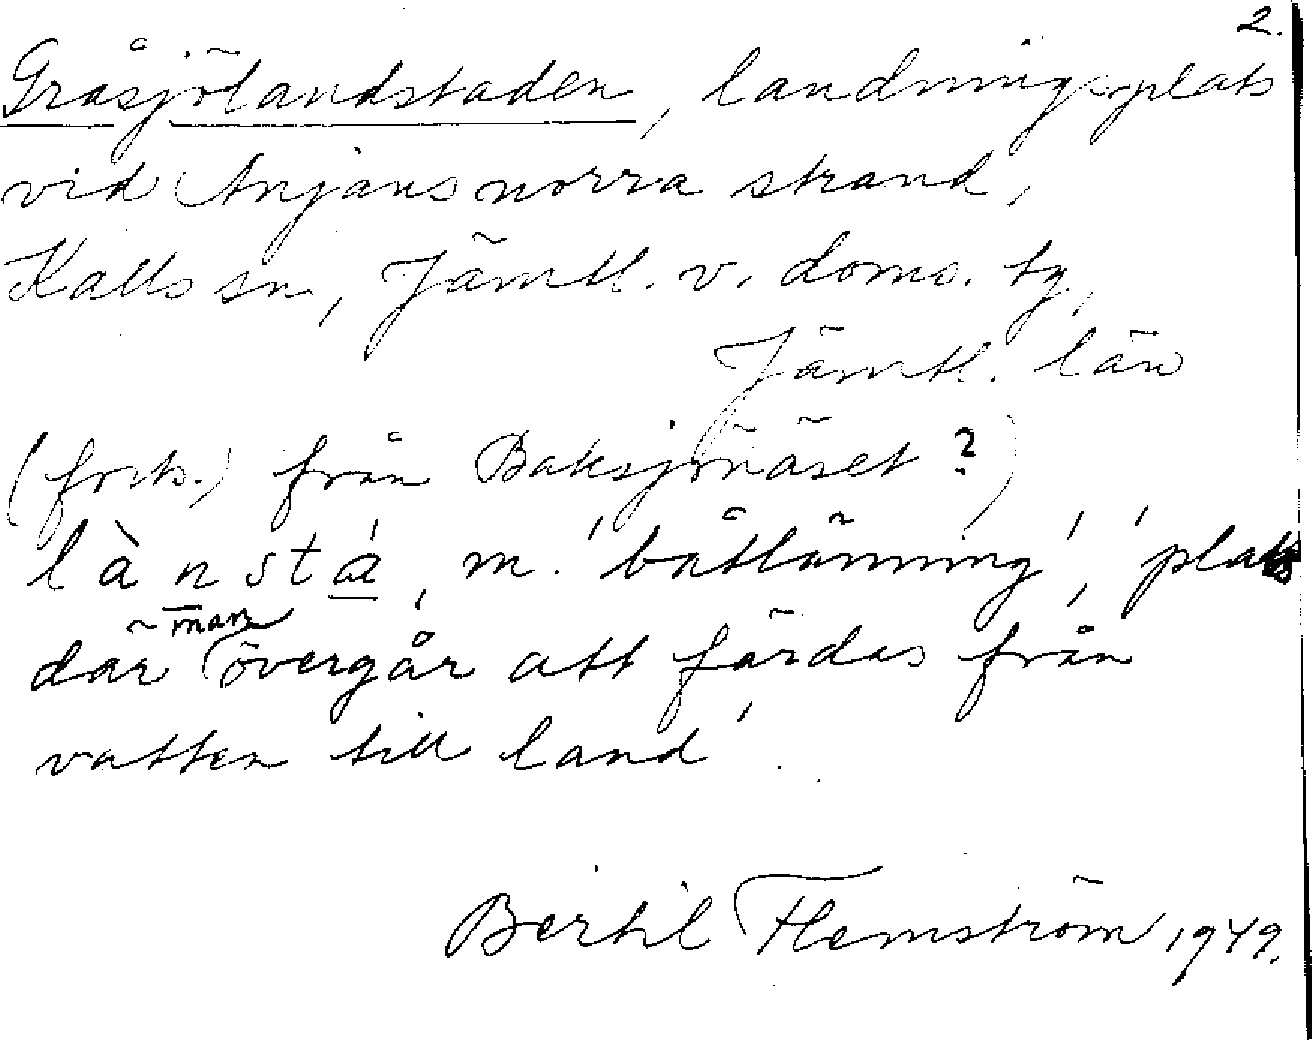 2.
Gråsjölandstaden, landningsplats
vid Anjans norra strand,
Kalls sn, Jämtl. v. doms. tg,
Jämtl. län
(forts.) från Baksjönäset ?)
lànstá, m. 'båtlänning', 'plats
där man övergår att färdas från
vatten till land'.
Bertil Flemström 1949.